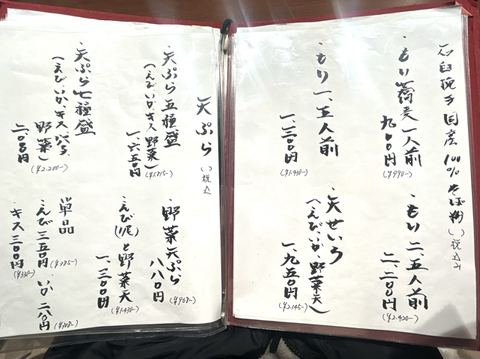 石臼挽き国産100%そば粉()税込み
・もり蕎麦一人前
九〇〇円
(¥990-)
・もり二、五人前
二、二〇〇円
(¥2.420-)
・もり一、五人前
一、三〇〇円
(¥1.430-)
・天せいろ
(えび、いか、野菜天)
一、九五〇円
天ぷら()税込
・天ぷら五種盛
(えび、いか、キス、野菜)
一、六五〇円
(¥1.815-)
・野菜天ぷら
八八〇円
(¥968-)
・えび(1尾)と野菜天
一、三〇〇円
(¥1.430-)
・天ぷら七種盛
(えび、いか、キス、
野菜)
二、〇〇〇円
(¥2.200-)
単品
えび三五〇円
(¥385-)
いか
キス三〇〇円
(¥330-)